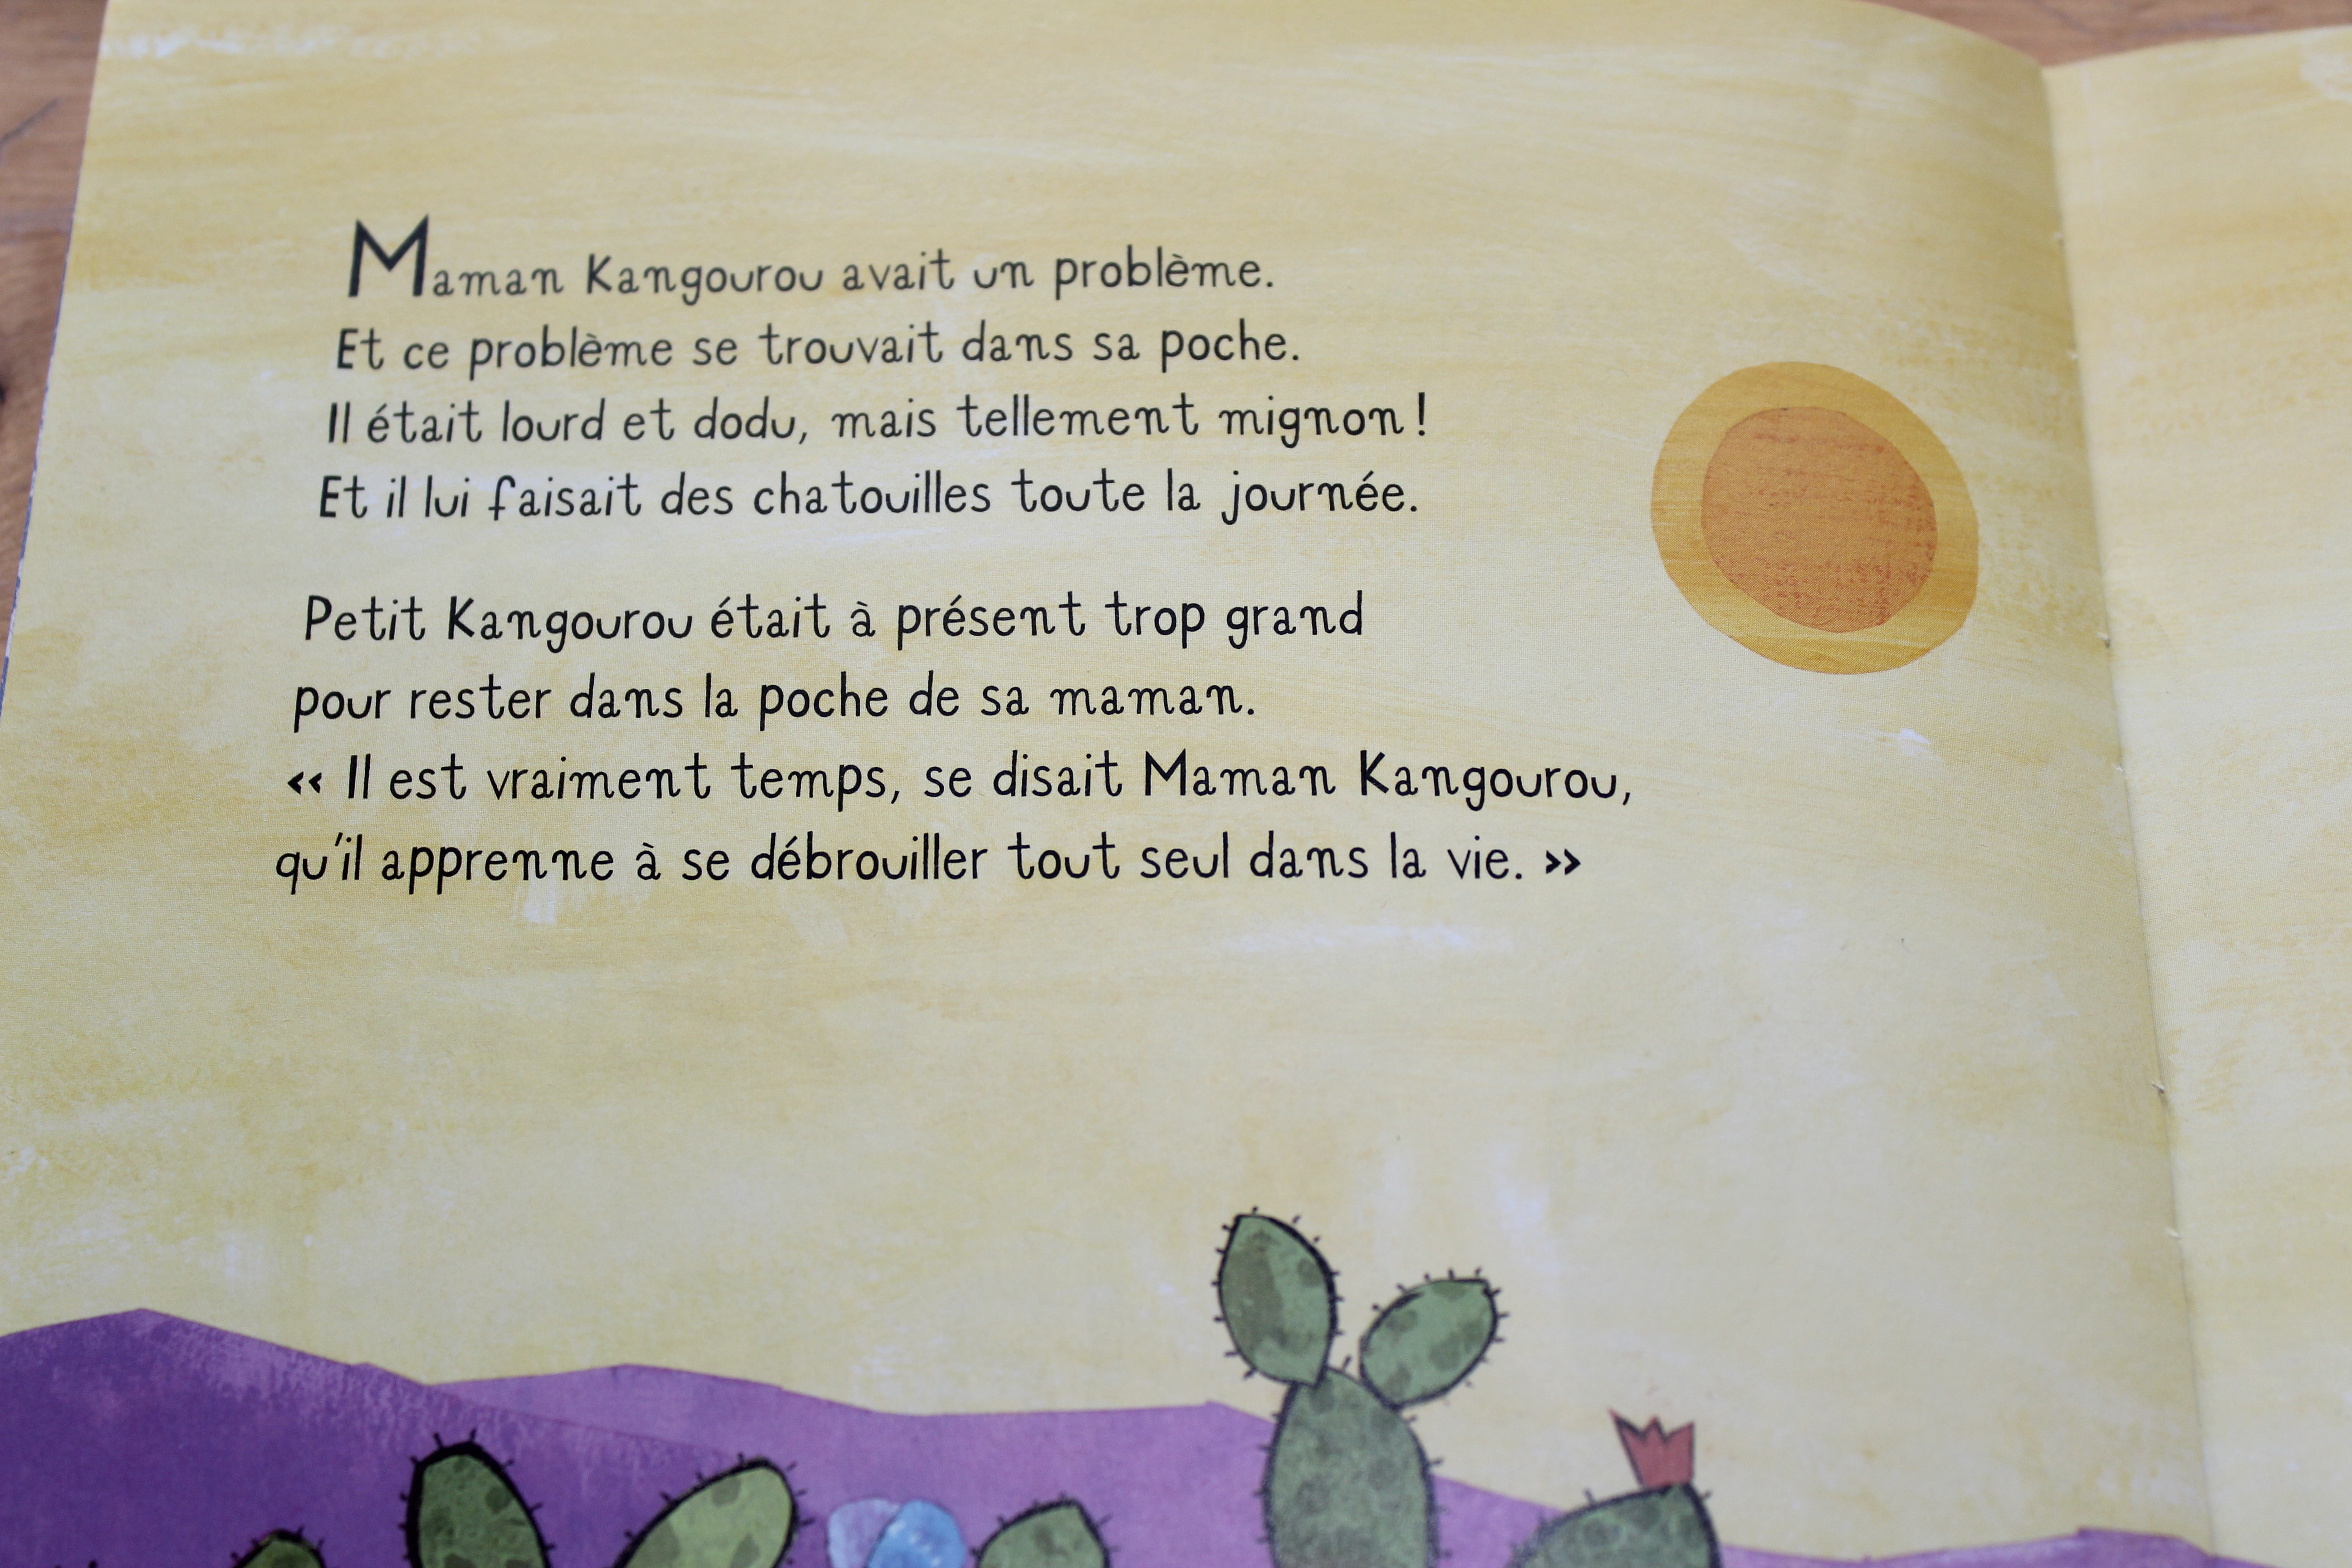 Maman Kangourou avait un problème.
Et ce problème se trouvait dans sa poche.
Il était lourd et dodu, mais tellement mignon !
Et il lui faisait des chatouilles toute la journée.
Petit Kangourou était à présent trop grand
pour rester dans la poche de sa maman.
« Il est vraiment temps, se disait Maman Kangourou,
qu'il apprenne à se débrouiller tout seul dans la vie. »